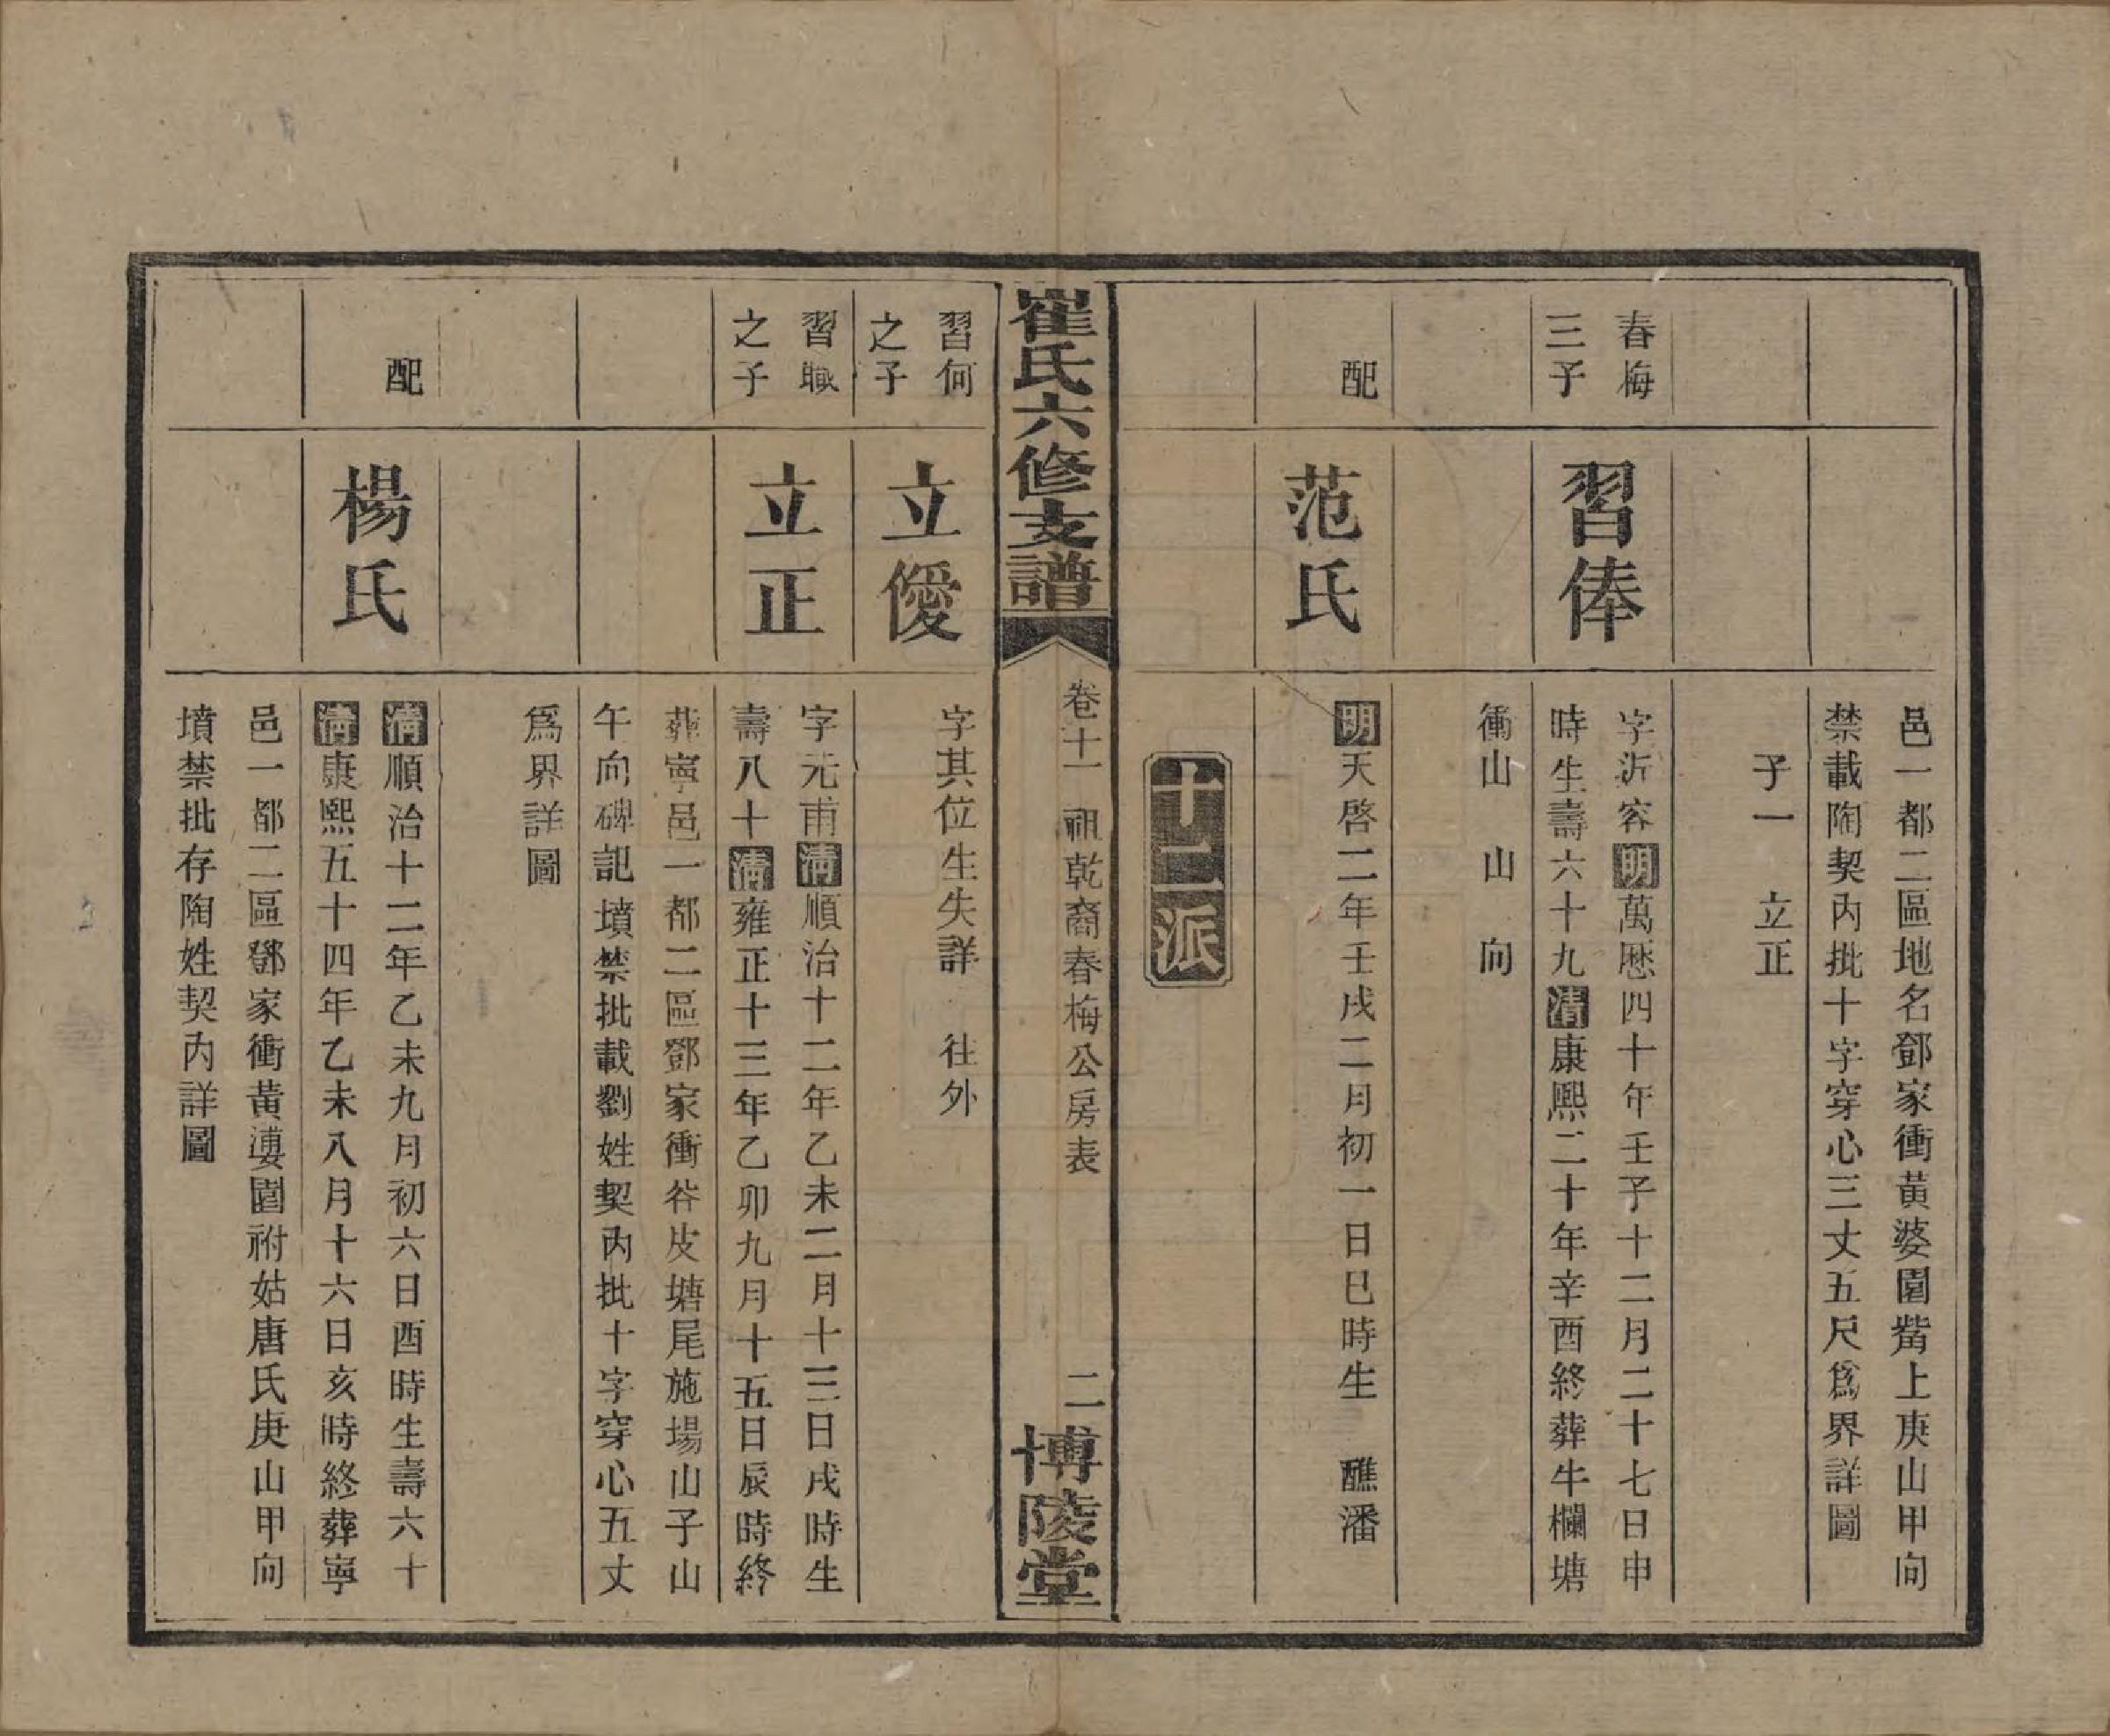 邑一都二區地名鄧家衝黃婆園觜上庚山甲向
禁載陶契內批十字穿心三丈五尺爲界詳圖
子一 立正
春梅
三子
習俸
字沂容明萬懕四十年壬子十二月二十七日申
時生壽六十九清康熙二十年辛酉終葬牛欄塘
衝山 山 向
配
范氏
明天啓二年壬戌二月初一日巳時生 醮潘
十二派
崔氏六修支譜
卷十一 祖乾裔春梅公房表
二
博陵堂
習何
之子
立優
字其位生失詳 往外
習職
之子
立正
字元甫清順治十二年乙未二月十三日戌時生
壽八十清雍正十三年乙卯九月十五日辰時終
葬寧邑一都二區鄧家衝谷皮塘尾施場山子山
午向碑記墳禁批載劉姓契內批十字穿心五丈
爲界詳圖
配
楊氏
清順治十二年乙未九月初六日酉時生壽六十
清康熙五十四年乙未八月十六日亥時終葬寧
邑一都二區鄧家衝黃婆園祔姑唐氏庚山甲向
墳禁批存陶姓契內詳圖